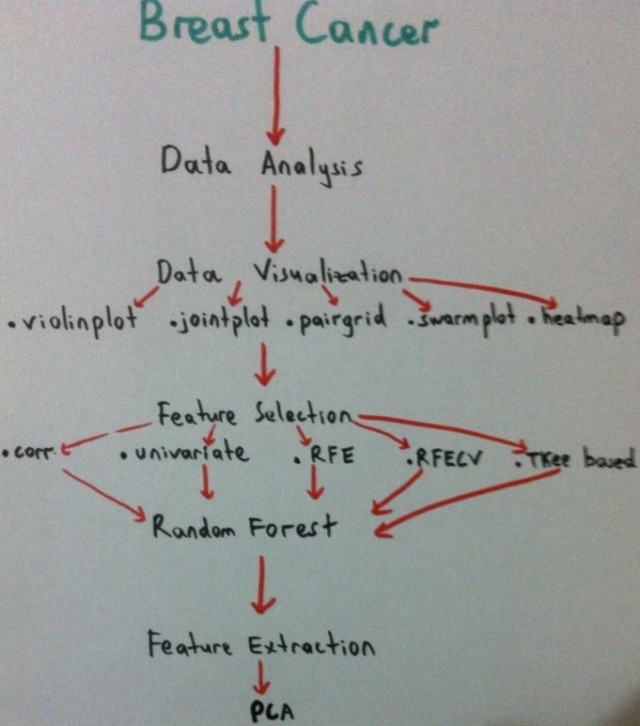 Breast Cancer
Data Analysis
Data Visualization
.violinplot .jointplot .pairgrid .swarmplot .heatmap
Feature Selection
.corr .univariate .RFE .RFECV .Tree based
Random Forest
Feature Extraction
PCA